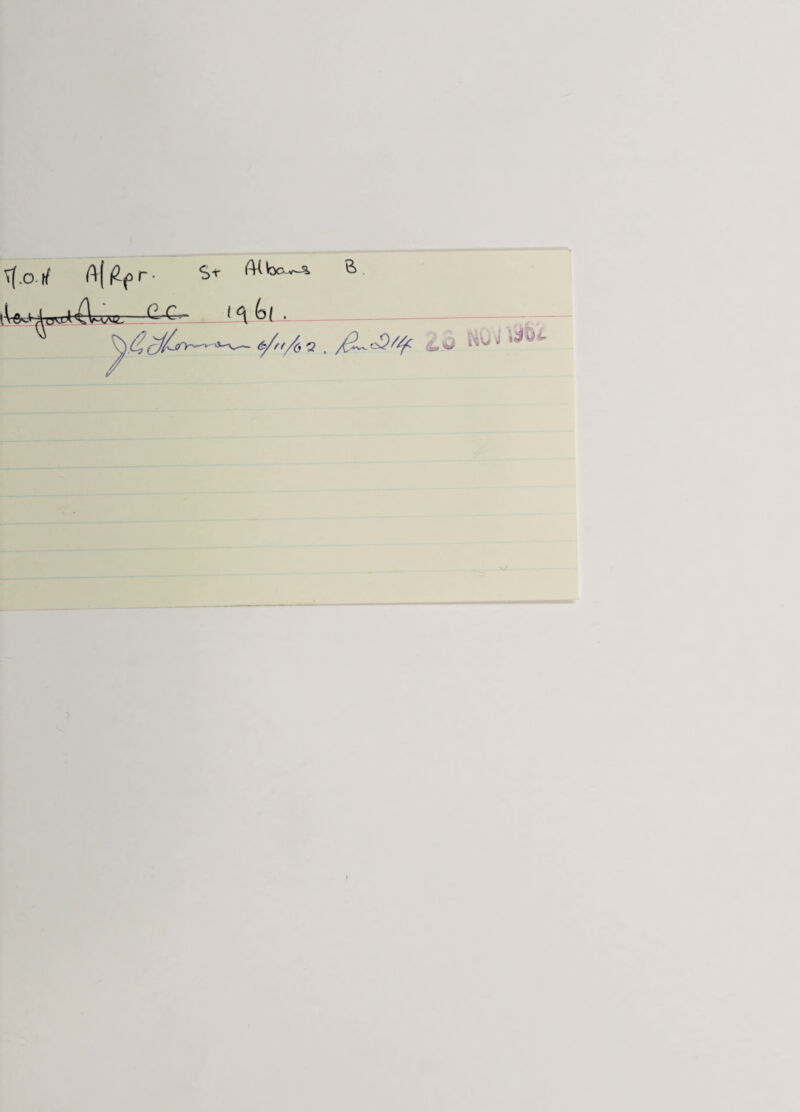 M.O.H A/Rpr. St Albans B.
Hertfordshire C.C. 1961.
6/11/62. Rm 214 26 NOV 1962